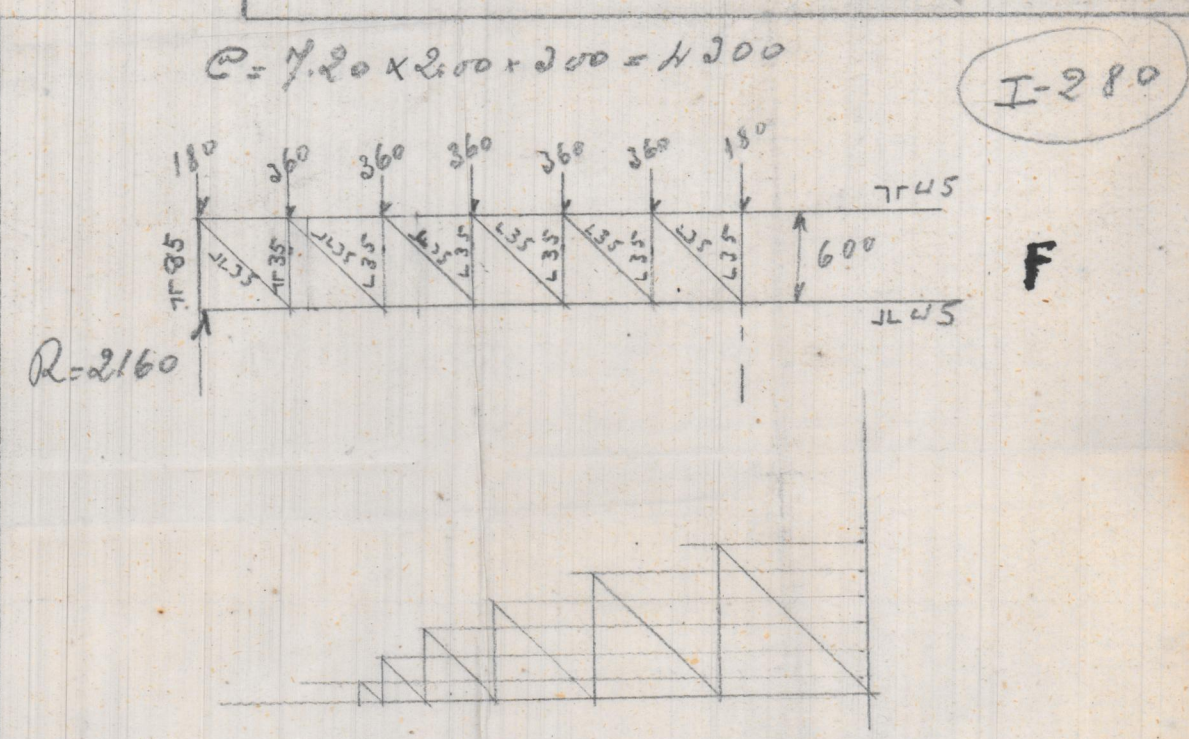 C = 7.20 x 2.00 x 300 = 4300
I-280
180 360 360 360 360 360 180
⅂Γ 45
⅂Γ 85
⅃L35
⅂Γ 35
⅃L35
L35
L35
L35
L35
L35
L35
L35
L35
L35
600
F
⅃L 45
R=2160